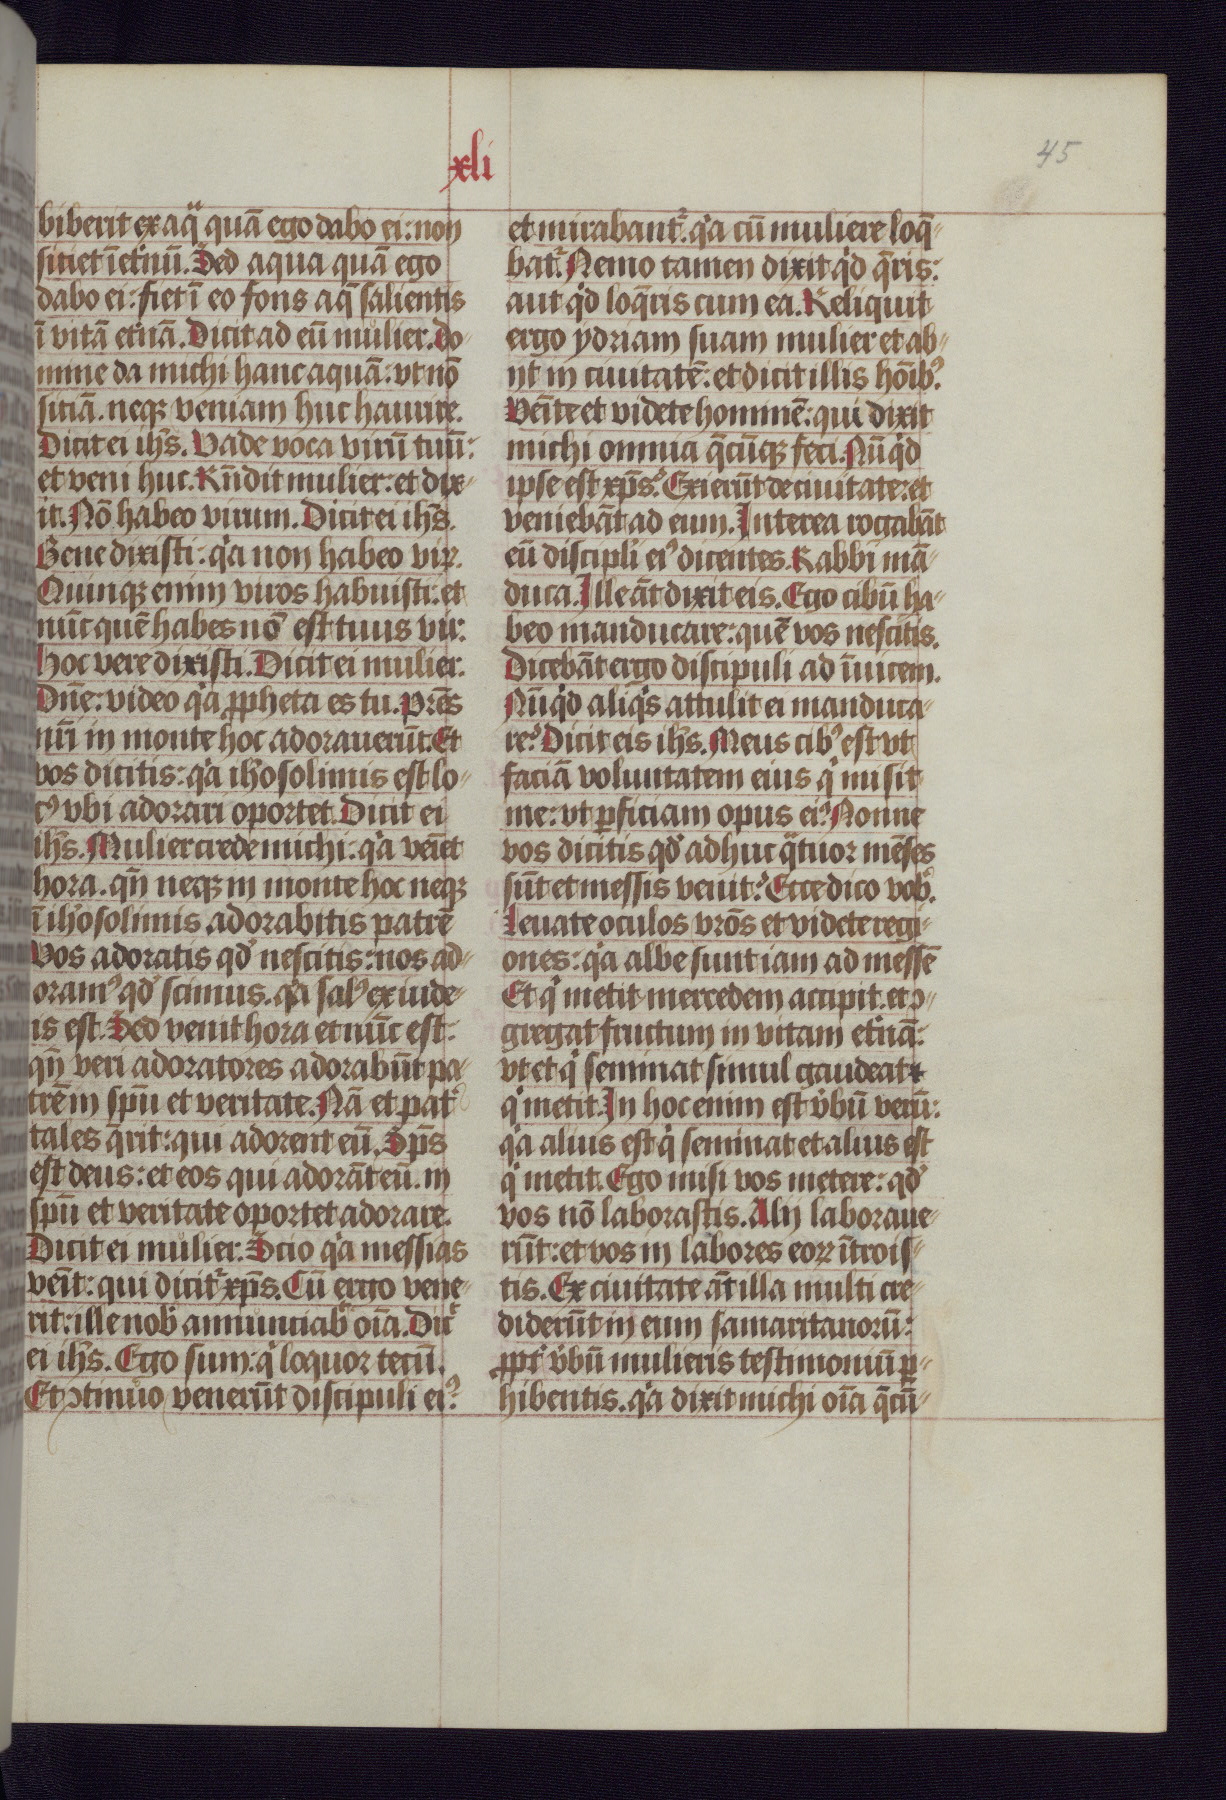 xli
45
biberit ex aqͣ quā ego dabo ei: non
sitiet ī et̾nū. Sed aqua quā ego
dabo ei: fiet ī eo fons aq̄ salientis
ī vitā et̾nā. Dicit ad eū mulier. do-
mine da michi hanc aquā: vt nō
sitiā. neqꝫ veniam huc haurire.
Dicit ei ihs̄. Vade voca virū tuū:
et veni huc. Rn̄dit mulier: et dix-
it. Nō habeo virum. Dicit ei ihs̄.
Bene dixisti: qͥa non habeo viꝝ.
Quinqꝫ enim viros habuisti: et
nūc quē habes nō est tuus vir.
hoc vere dixisti. Dicit ei mulier.
Dn̄e: video qͥa ꝓpheta es tu. Pr̄es
nr̄i in monte hoc adorauerūt. Et
vos dicitis: qͥa ih̾osolimis est lo-
cꝰ vbi adorari oportet. Dicit ei
ihs̄. Mulier crede michi: qͥa veīet
hora. qn̄ neqꝫ in monte hoc neqꝫ
ī ih̾osolimis adorabitis patrē
Vos adoratis qd̾ nescitis: nos ad-
oramꝰ qd̾ scimus. qͥa salꝰ ex iude-
is est. Sed venit hora et nūc est:
qn̄ veri adoratores adorabūt pa-
trē in sp̄u et veritate. Nā et pat̾
tales q̄rit: qui adorent eū. Sp̄s
est deus: et eos qui adorāt eū. in
sp̄u et veritate oportet adorare.
Dicit ei mulier. Scio qͥa messias
veīt: qui dicit᷑ xp̄s. Cū ergo vene-
rit: ille nob̾ annunciab̾ oīa. Dic̾
ei ihs̄. Ego sum: qͥ loquor tecū.
Et ꝯtinuo venerūt discipuli eiꝰ
et mirabant᷑. qͥa cū muliere loq̄-
bat᷑. Nemo tamen dixit qͥd q̄ris:
aut qͥd loq̄ris cum ea. Reliquit
ergo ydriam suam mulier et ab-
ijt in ciuitatē: et dicit illis hoībꝰ.
Veīte et videte hominē: qui dixit
michi omnia q̄cūqꝫ feci. Nūqͥd
ipse est xp̄s? Exierūt de ciuitate: et
veniebāt ad eum. Interea rogabāt
eū discipl̓i eiꝰ dicentes. Rabbi mā-
duca. Ille āt dixit eis. Ego cibū ha-
beo manducare: quē vos nescitis.
Dicebāt ergo discipuli ad īuicem.
Nūqͥd aliqͥs attulit ei manduca-
re? Dicit eis ihs̄. Meus cibꝰ est vt
faciā voluntatem eius qͥ misit
me: vt ꝑficiam opus eiꝰ. Nonne
vos dicitis qd̾ adhuc qͣtuor mēses
sūt et messis venit? Ecce dico vob̾.
Leuate oculos vr̄os et videte regi-
ones: qͥa albe sunt iam ad messē
Et qͥ metit mercedem accipit. et ꝯ-
gregat fructum in vitam et̾nā:
vt et qͥ seminat simul gaudeat ⁊
qͥ metit. In hoc enim est v̾bū verū:
qͥa alius est qͥ seminat et alius est
qͥ metit. Ego misi vos metere: qd̾
vos nō laborastis. Alij laboraue-
rūt: et vos in labores eoꝝ ītrois-
tis. Ex ciuitate āt illa multi cre-
diderūt in eum samaritanorū:
ꝓpt̾ v̾bū mulieris testimoniū ꝑ-
hibentis. qͥa dixit michi oīa q̄cū-